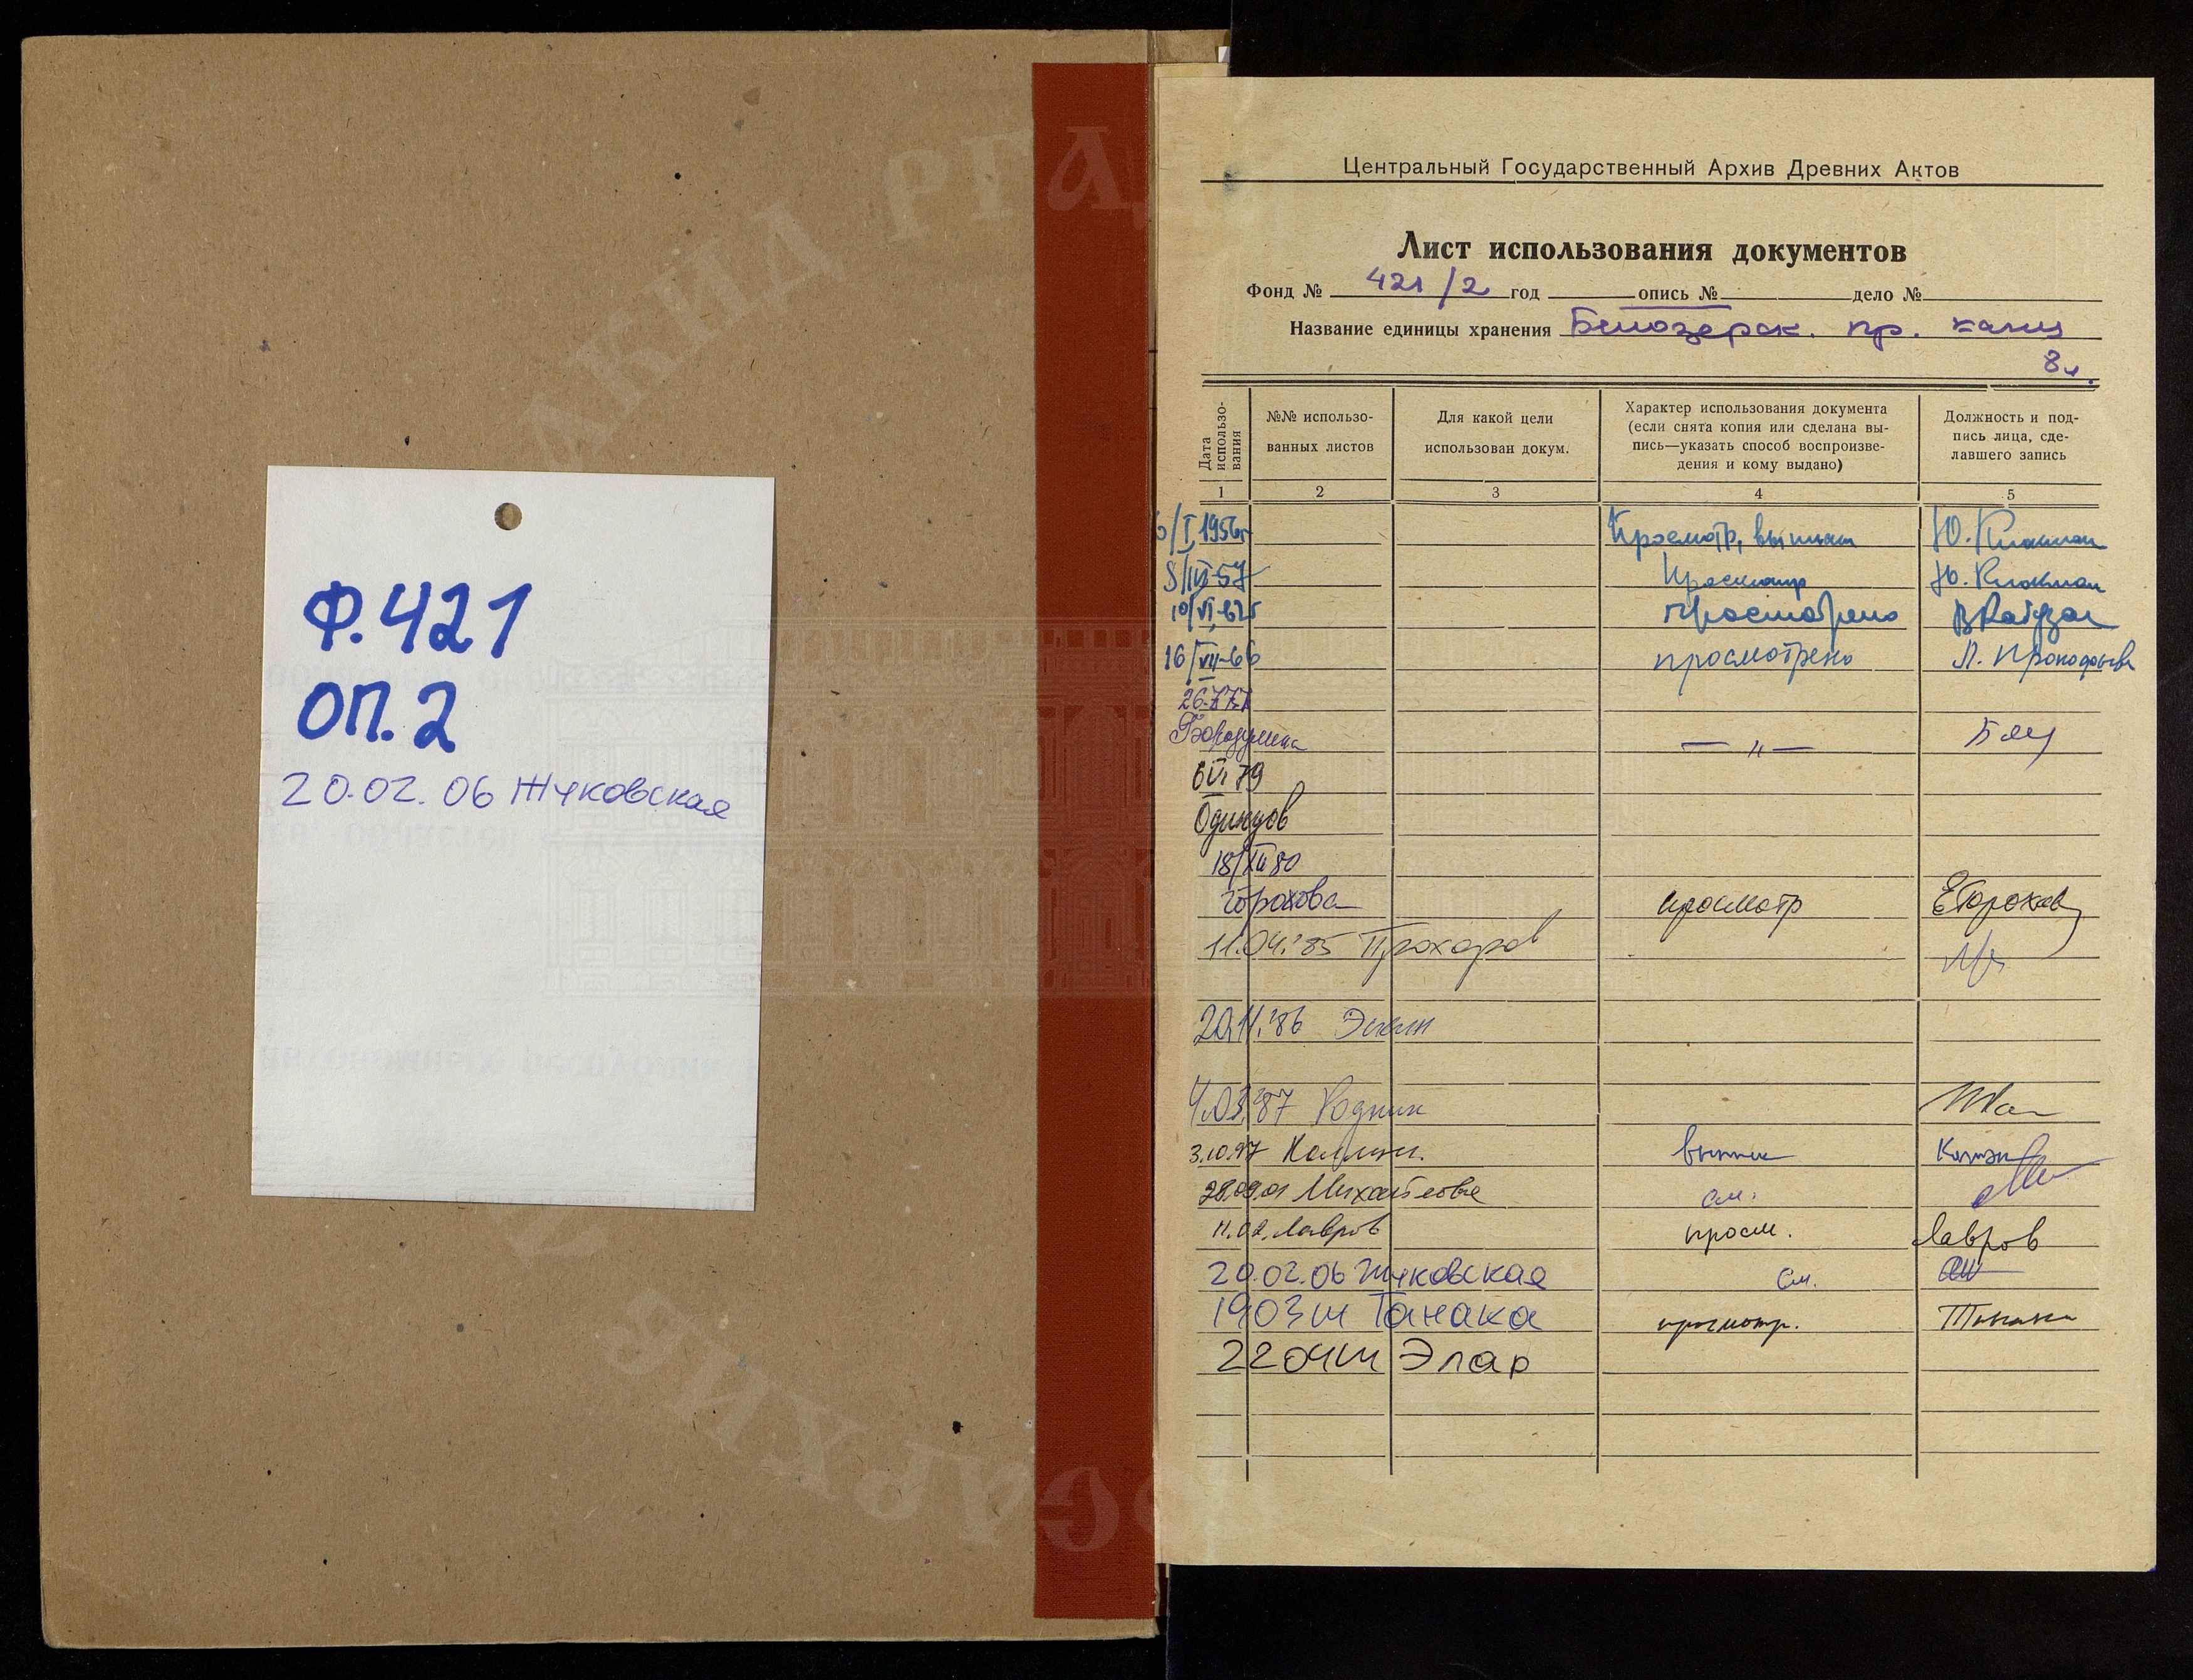 Ф. 421
ОП. 2
20.02.06 Жуковская
Центральный Государственный Архив Древних Актов
Лист использования документов
Фонд № 421/2 год опись № дело №
Название единицы хранения Белозерск. пр. канц
8 л.
Дата использо-вания
№№ использо-
ванных листов
Для какой цели
использован докум.
Характер использования документа
(если снята копия или сделана вы-
пись—указать способ воспроизве-
дения и кому выдано)
Должность и под-
пись лица, сде-
лавшего запись
1 2 3 4 5
/I 1956г Просмотр, выписки Ю. Клокман
8/III-57 Просмотр Ю. Клокман
10/VI-62г просмотрено
16/VII-66 просмотрено Л. Прокофьева
Бородулина — " —
6 VI 79
Одинцов
18/XII 80
Горохова просмотр ЕГорохов
11.04.'85 Прохоров
20.11.'86 Эскин
4.03.'87 Родник
3.10.97
28.09.01 Михайлова см.
11.02. Лавров просм. Лавров
20.02.06 Жуковская см.
1903 ш Танака просмотр. Танака
2204 ш Элар